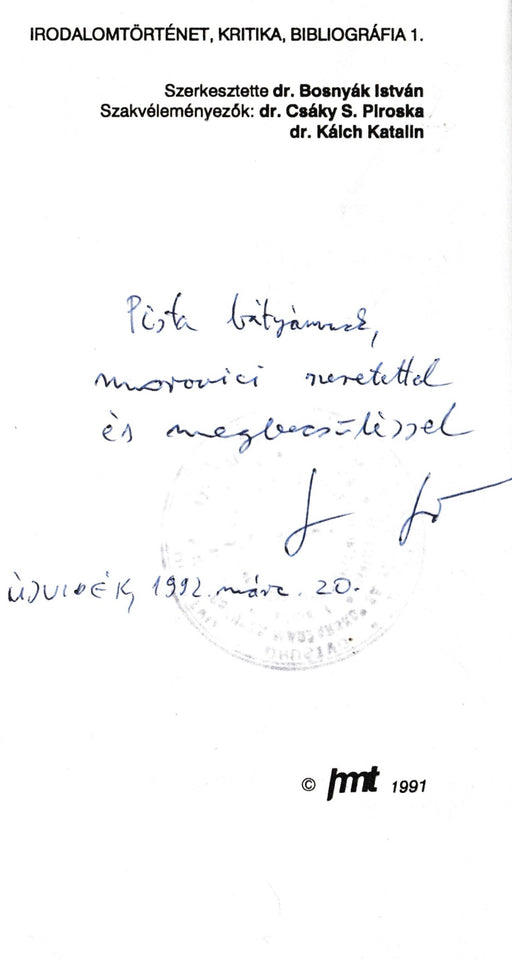 IRODALOMTÖRTÉNET, KRITIKA, BIBLIOGRÁFIA 1.
Szerkesztette dr. Bosnyák István
Szakvéleményezők: dr. Csáky S. Piroska
dr. Kálch Katalin
Pista bátyámnak,
morovici szeretettel
és megbecsüléssel
ÚJVIDÉK, 1992. márc. 20.
© jmt 1991